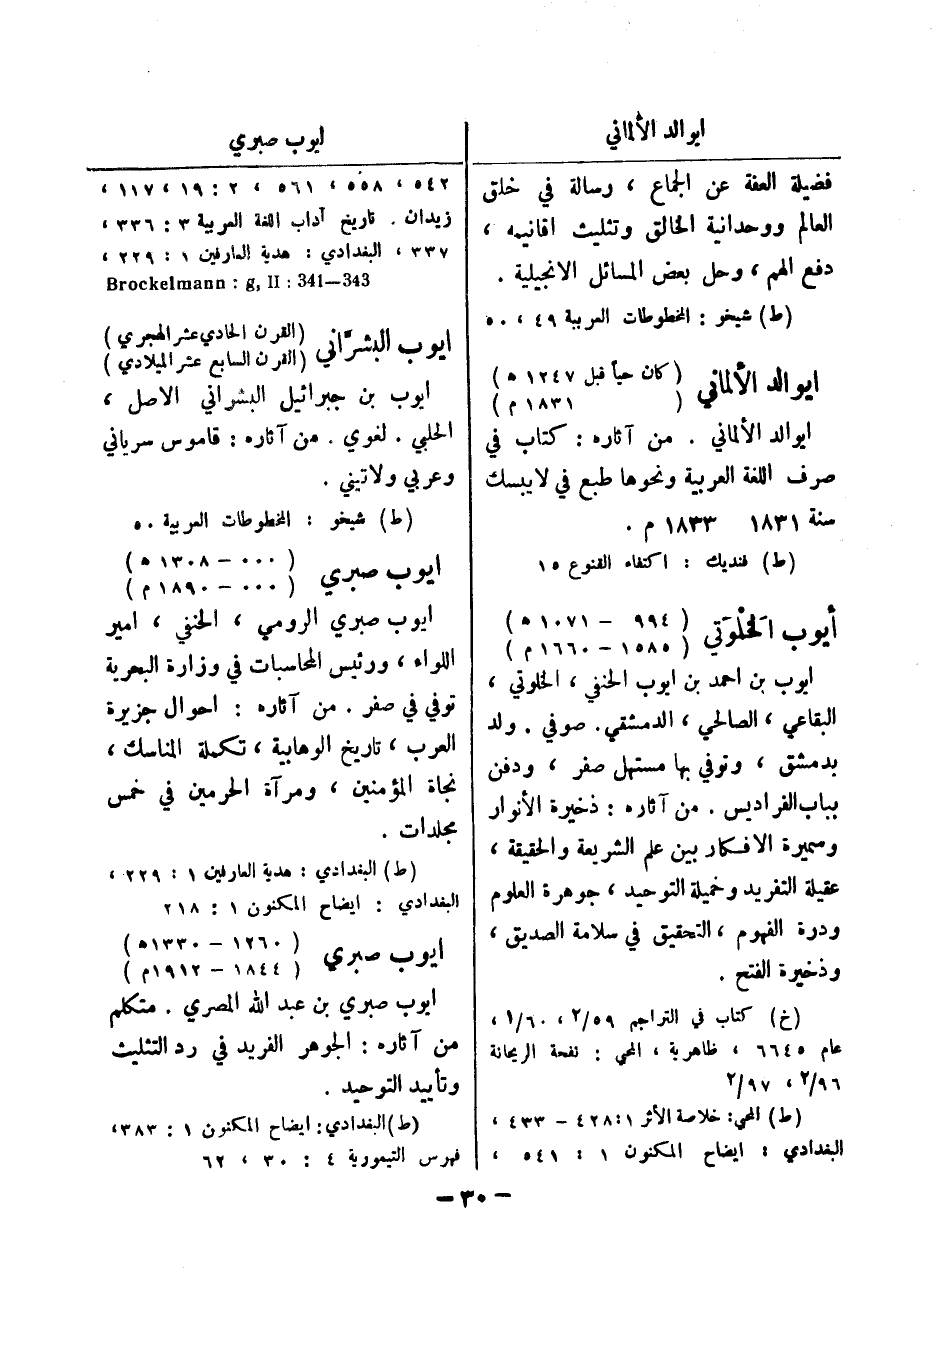 ايوالد الألماني
فضيلة العفة عن الجماع ، رسالة في خلق
العالم ووحدانية الخالق وتثليث اقانيمه ،
دفع الهم ، وحل بعض المسائل الانجيلية .
(ط) شيخو : المخطوطات العربية ٤٩ ، ٥٠
ايوالد الألماني (كان حياً قبل ١٢٤٧ ه)
( ١٨٣١ م)
ايوالد الألماني . من آثاره : كتاب في
صرف اللغة العربية ونحوها طبع في لايبسك
سنة ١٨٣١ ١٨٣٣ م .
(ط) فنديك : اكتفاء القنوع ١٥
أيوب الخَلْوَتي ( ٩٩٤ – ١٠٧١ ه)
( ١٥٨٥ – ١٦٦٠ م)
ايوب بن احمد بن ايوب الحنفي ، الخلوتي ،
البقاعي ، الصالحي ، الدمشقي . صوفي . ولد
بدمشق ، وتوفي بها مستهل صفر ، ودفن
بباب الفراديس . من آثاره : ذخيرة الأنوار
وسميرة الافكار بين علم الشريعة والحقيقة ،
عقيلة التفريد وخميلة التوحيد ، جوهرة العلوم
ودرة الفهوم ، التحقيق في سلامة الصديق ،
وذخيرة الفتح .
(خ) كتاب في التراجم ٢/٥٩ ، ١/٦٠ ،
عام ٦٦٤٥ ، ظاهرية ، المحبي : نفحة الريحانة
٢/٩٦ ، ٢/٩٧
(ط) المحبي : خلاصة الأثر ١ : ٤٢٨ – ٤٣٣ ،
البغدادي : ايضاح المكنون ١ : ٥٤١ ،
ايوب صبري
٥٤٢ ، ٥٥٨ ، ٥٦١ ، ٢ : ١٩ ، ١١٧ ،
زيدان . تاريخ آداب اللغة العربية ٣ : ٣٣٦ ،
٣٣٧ ، البغدادي : هدية العارفين ١ : ٢٢٩ ،
Brockelmann : g, II : 341—343
ايوب البشرّاني (القرن الحادي عشر الهجري)
(القرن السابع عشر الميلادي)
ايوب بن جبرائيل البشراني الاصل ،
الحلبي . لغوي . من آثاره : قاموس سرياني
وعربي ولاتيني .
(ط) شيخو : المخطوطات العربية ٥٠
ايوب صبري ( ٠٠٠ – ١٣٠٨ ه)
( ٠٠٠ – ١٨٩٠ م)
ايوب صبري الرومي ، الحنفي ، امير
اللواء ، ورئيس المحاسبات في وزارة البحرية
توفي في صفر . من آثاره : احوال جزيرة
العرب ، تاريخ الوهابية ، تكملة المناسك ،
نجاة المؤمنين ، ومرآة الحرمين في خمس
مجلدات .
(ط) البغدادي : هدية العارفين ١ : ٢٢٩ ،
البغدادي : ايضاح المكنون ١ : ٢١٨
ايوب صبري ( ١٢٦٠ – ١٣٣٠ه)
( ١٨٤٤ – ١٩١٢م)
ايوب صبري بن عبد الله المصري . متكلم
من آثاره : الجوهر الفريد في رد التثليث
وتأييد التوحيد .
(ط) البغدادي : ايضاح المكنون ١ : ٣٨٣ ،
فهرس التيمورية ٤ : ٣٠ ، ٦٢
– ٣٠ –